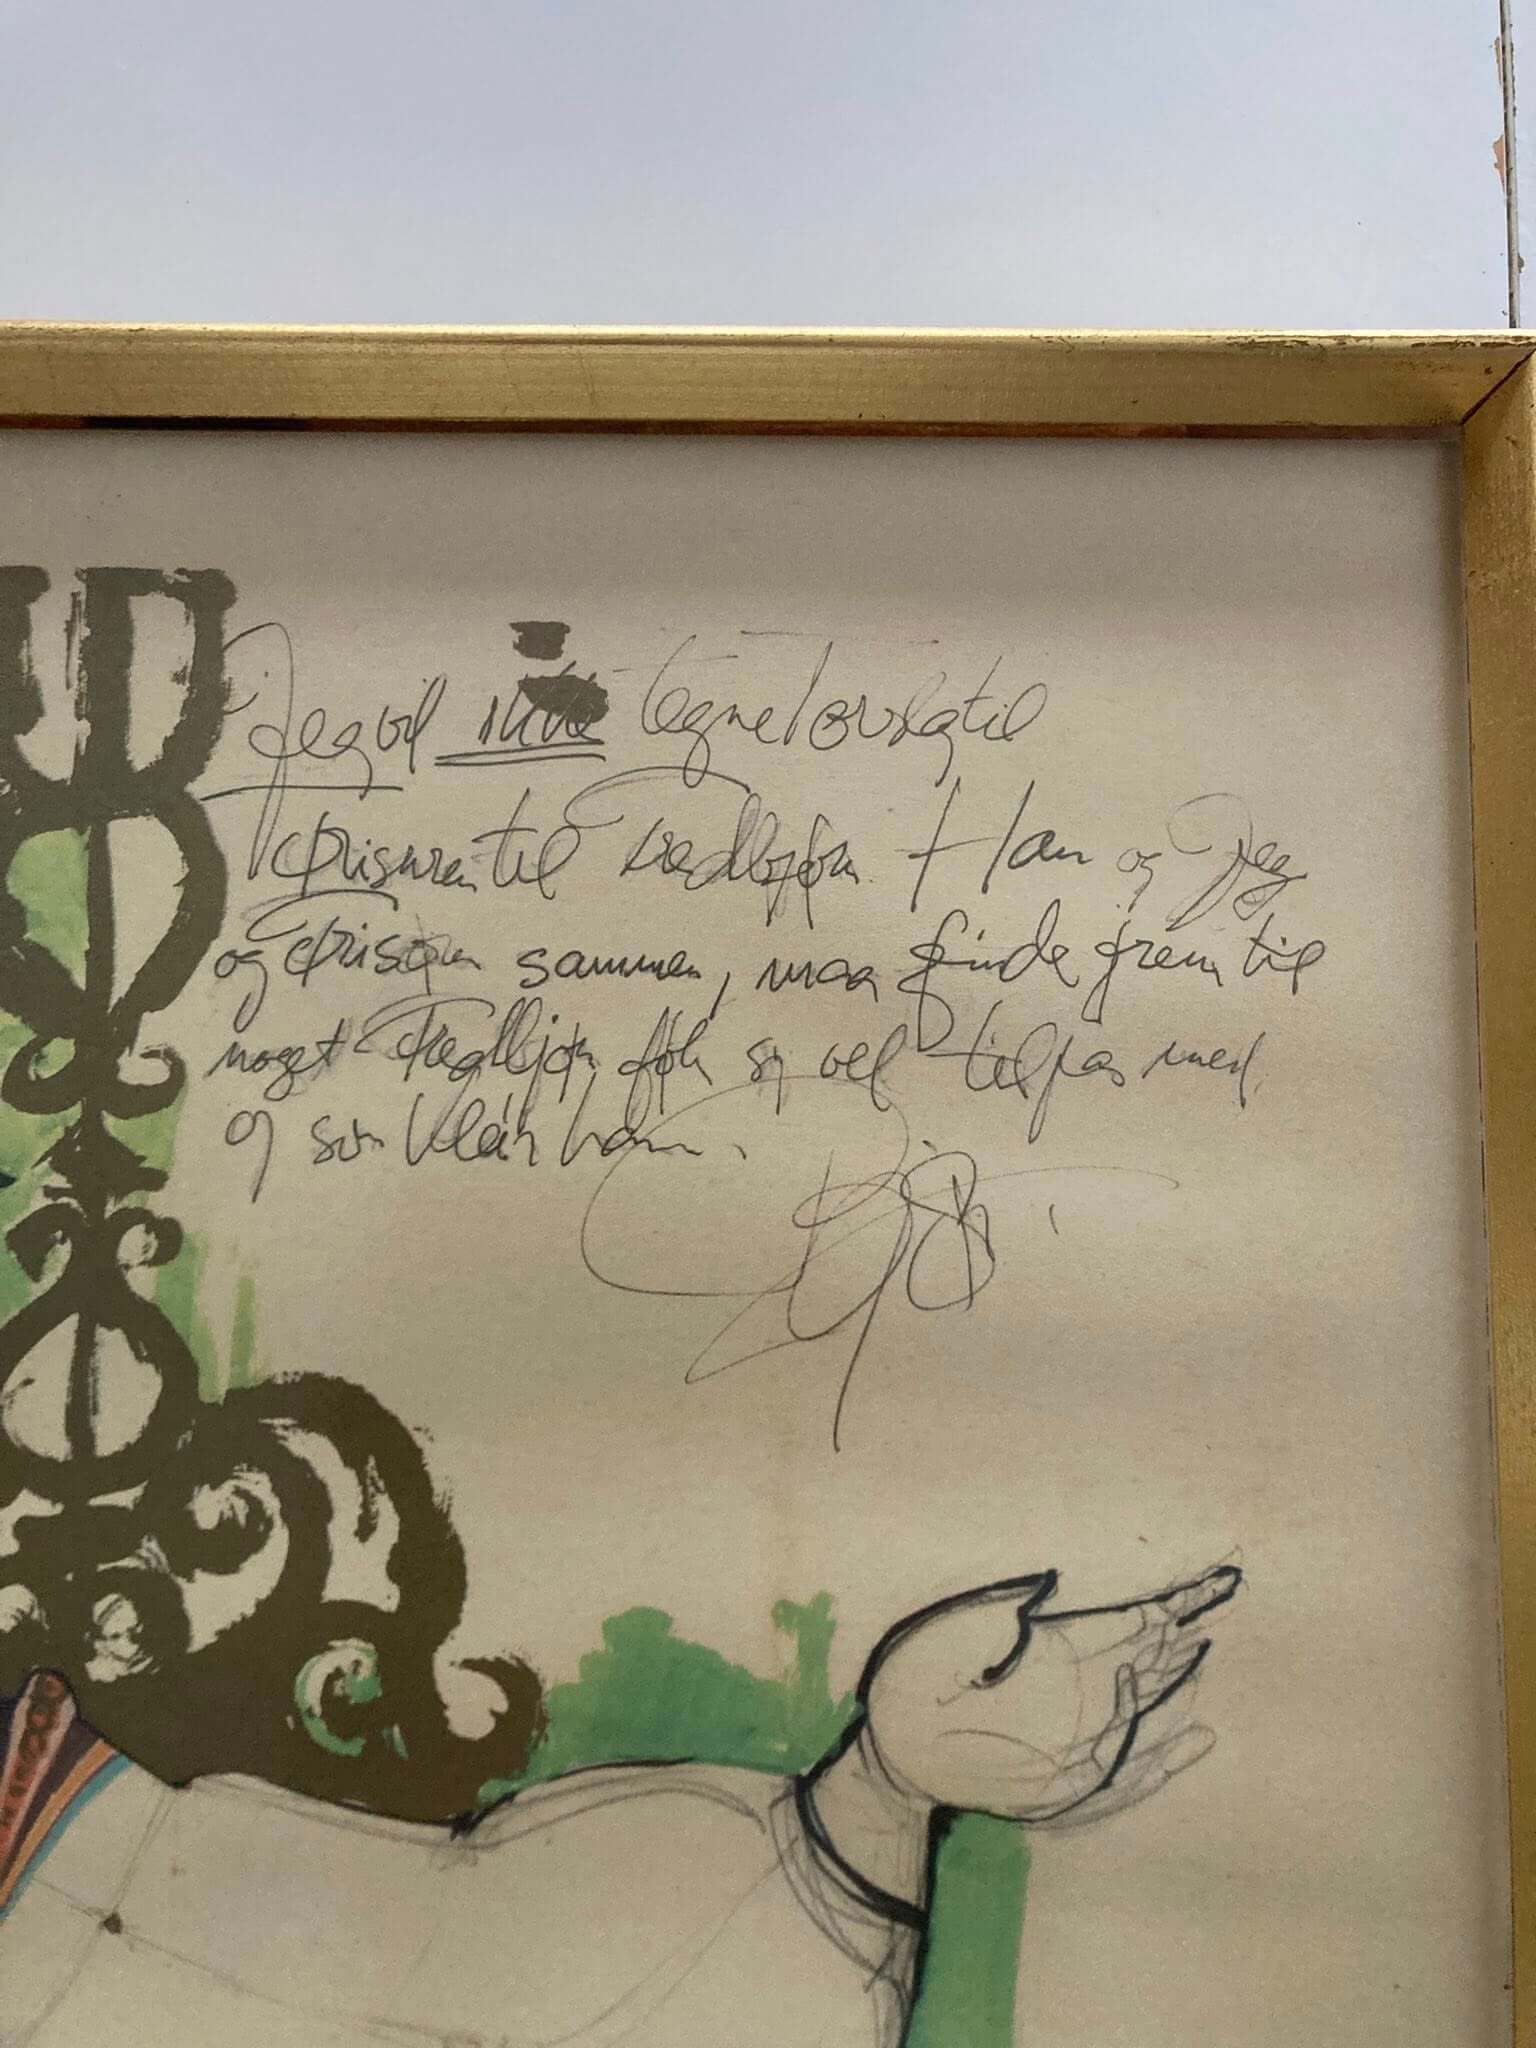 Jeg vil ikke tegne forslag til
frisuren til Fredbjørn. Han og Jeg
og frisøren sammen, maa finde frem til
noget Fredbjørn føler sig vel tilpas med
og som klær ham.